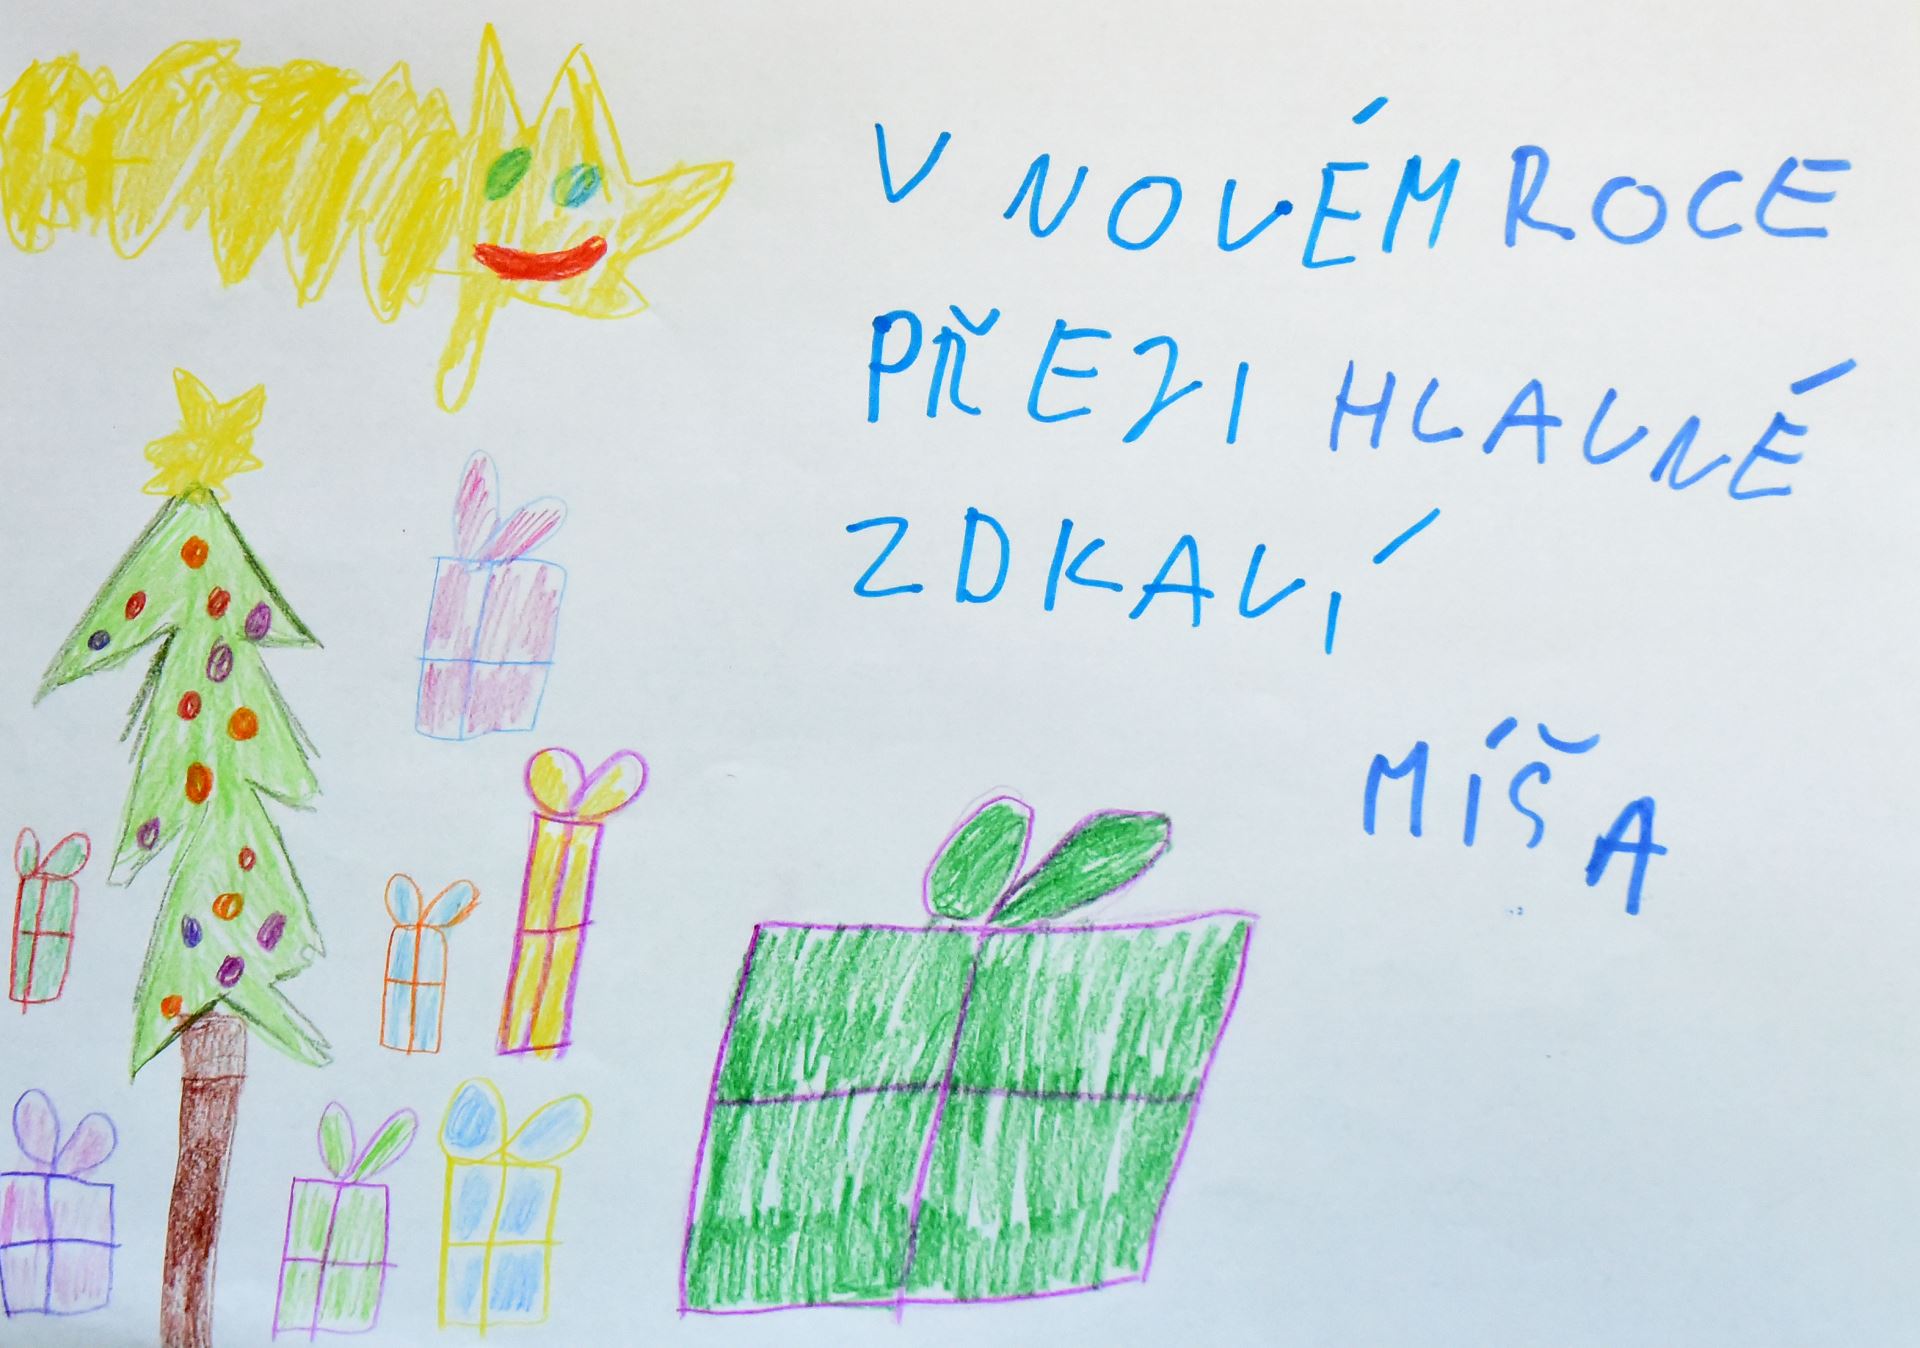 V NOVÉM ROCE
PŘEJI HLAVNÉ
ZDRAVÍ
MÍŠA